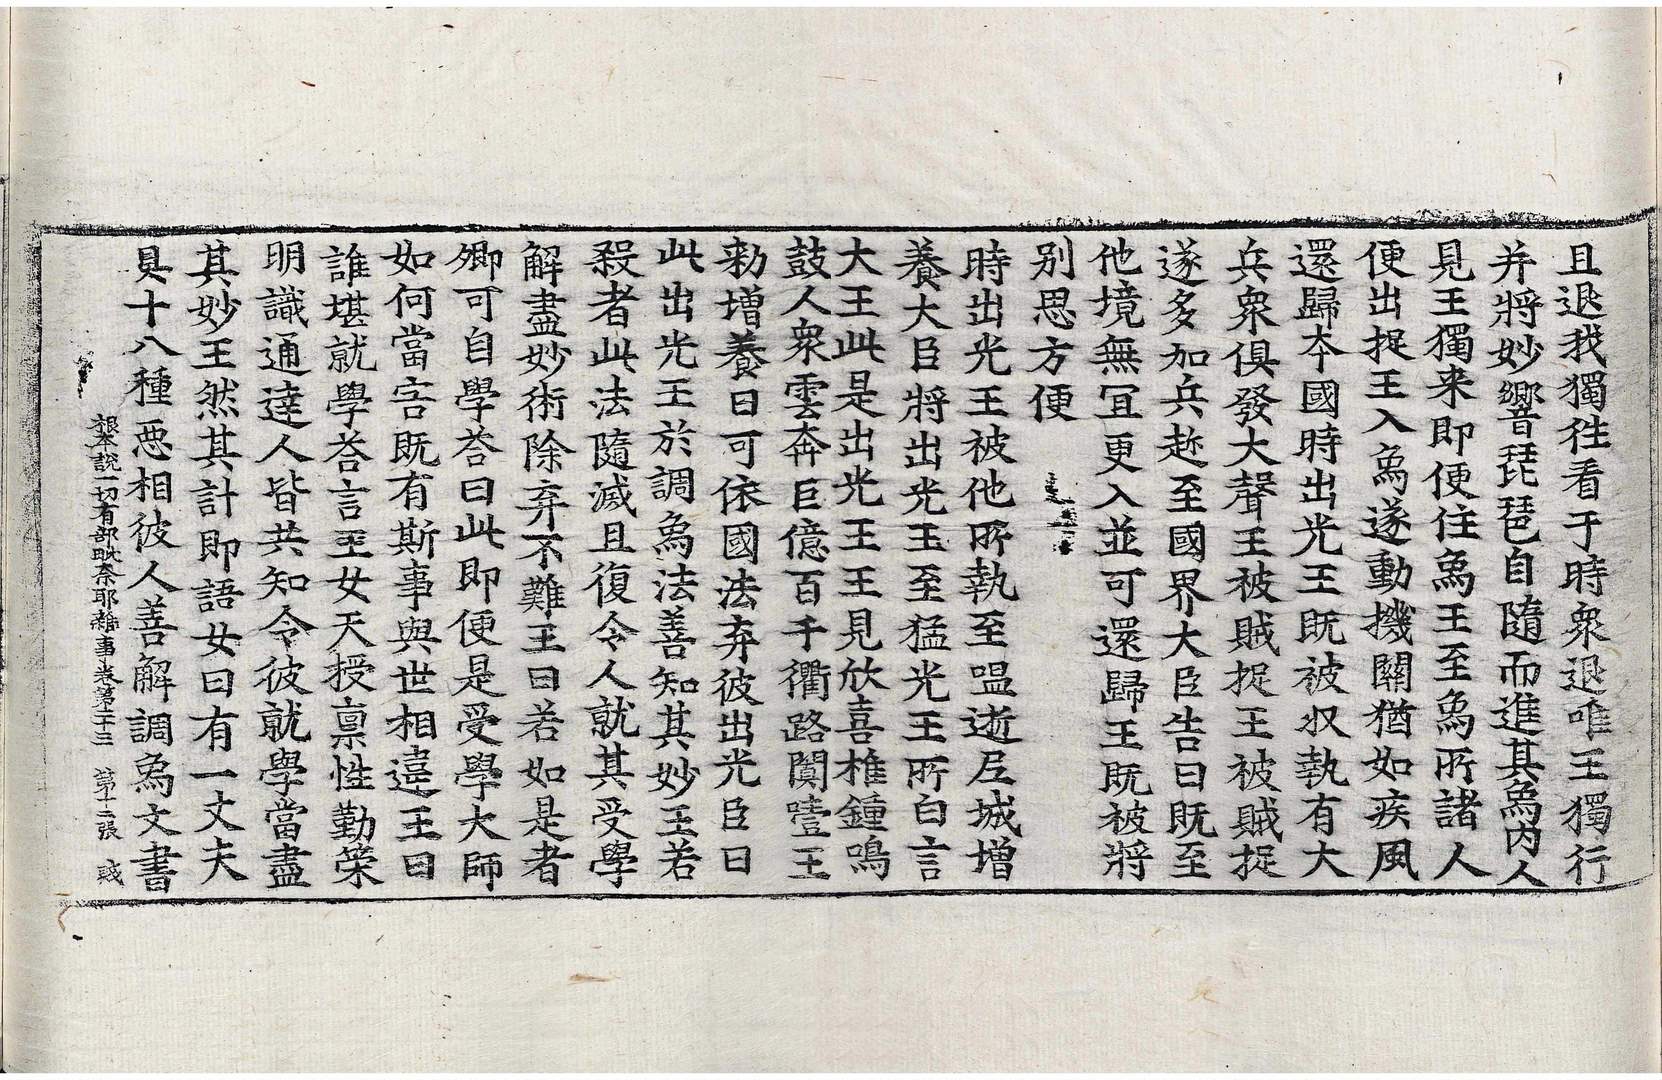 且退我獨往看于時衆退唯王獨行
并將妙響琵琶自隨而進其爲內人
見王獨来即便住爲王至爲所諸人
便出捉王入爲遂動機關猶如疾風
還歸本國時出光王既被收執有大
兵衆俱發大聲王被賊捉王被賊捉
遂多加兵趂至國界大臣告曰既至
他境無冝更入並可還歸王既被將
别思方便
時出光王被他所執至嗢逝尼城增
養大臣將出光王至猛光王所白言
大王此是出光王王見欣喜椎鍾鳴
鼓人衆雲奔巨億百千衢路闐噎王
勑增養曰可依國法弃彼出光臣曰
此出光王於調爲法善知其妙王若
殺者此法隨滅且復令人就其受學
解盡妙術除弃不難王曰若如是者
卿可自學荅曰此即便是受學大師
如何當害既有斯事與世相違王曰
誰堪就學荅言王女天授禀性勤策
明識通達人皆共知令彼就學當盡
其妙王然其計即語女曰有一丈夫
具十八種惡相彼人善解調爲文書
根本說一切有部毗奈耶雜事卷第二十三 第十二張 戝